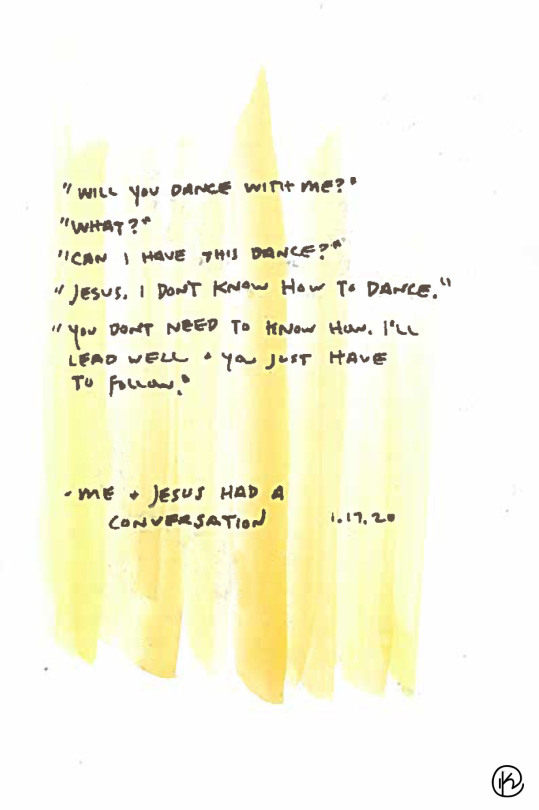 "WILL YOU DANCE WITH ME?"
"WHAT?"
"CAN I HAVE THIS DANCE?"
"JESUS. I DON'T KNOW HOW TO DANCE."
"YOU DON'T NEED TO KNOW HOW. I'LL
LEAD WELL + YOU JUST HAVE
TO FOLLOW."
- ME + JESUS HAD A
CONVERSATION 1.17.20